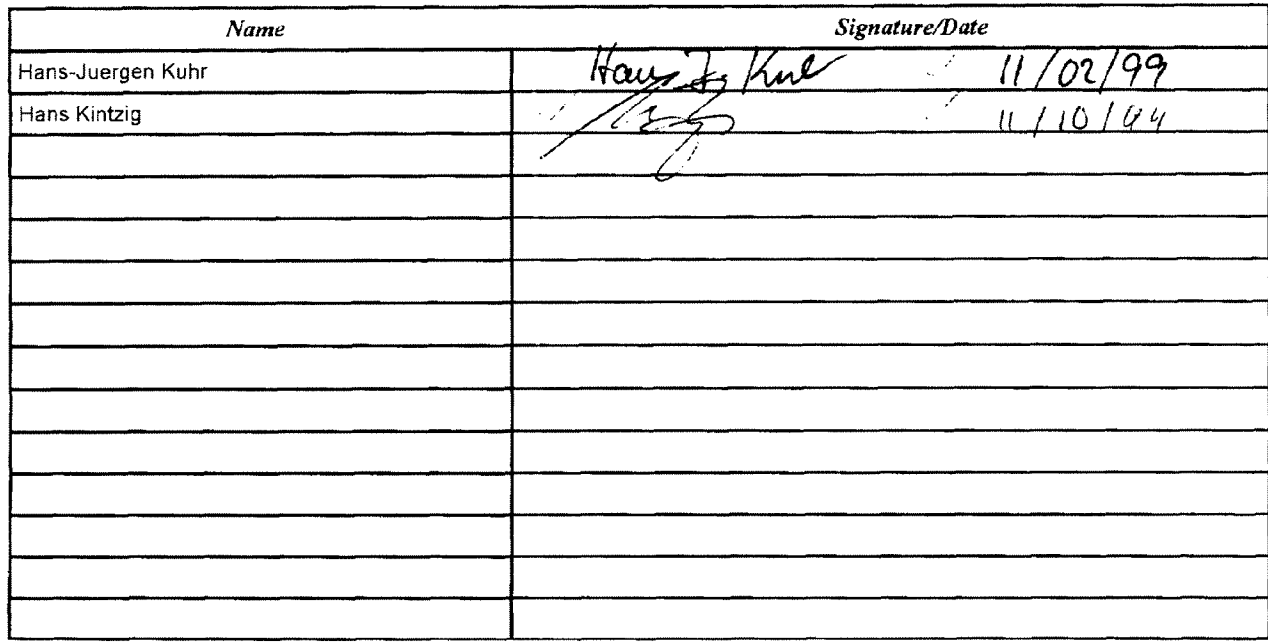 Name Signature/Date
Hans-Juergen Kuhr Hans Jg Kuhr 11/02/99
Hans Kintzig 11/10/99